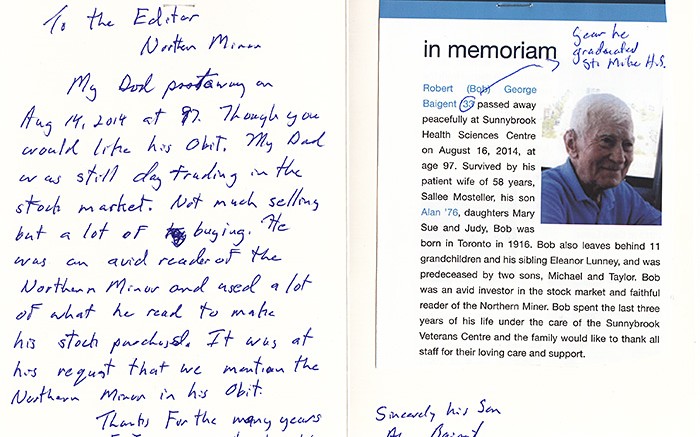 To the Editor
Northern Minor
My Dad past away on
Aug 14, 2014 at 97. Though you
would like his Obit. My Dad
was still day trading in the
stock market. Not much selling
but a lot of buying. He
was an avid reader of the
Northern Minor and used a lot
of what he read to make
his stock purchases. It was at
his request that we mention the
Northern Minor in his Obit.
Thanks For the many years
in memoriam
year he
graduated
St. Mikes H.S.
Robert (Bob) George
Baigent 33 passed away
peacefully at Sunnybrook
Health Sciences Centre
on August 16, 2014, at
age 97. Survived by his
patient wife of 58 years,
Sallee Mosteller, his son
Alan '76, daughters Mary
Sue and Judy, Bob was
born in Toronto in 1916. Bob also leaves behind 11
grandchildren and his sibling Eleanor Lunney, and was
predeceased by two sons, Michael and Taylor. Bob
was an avid investor in the stock market and faithful
reader of the Northern Miner. Bob spent the last three
years of his life under the care of the Sunnybrook
Veterans Centre and the family would like to thank all
staff for their loving care and support.
Sincerely his Son